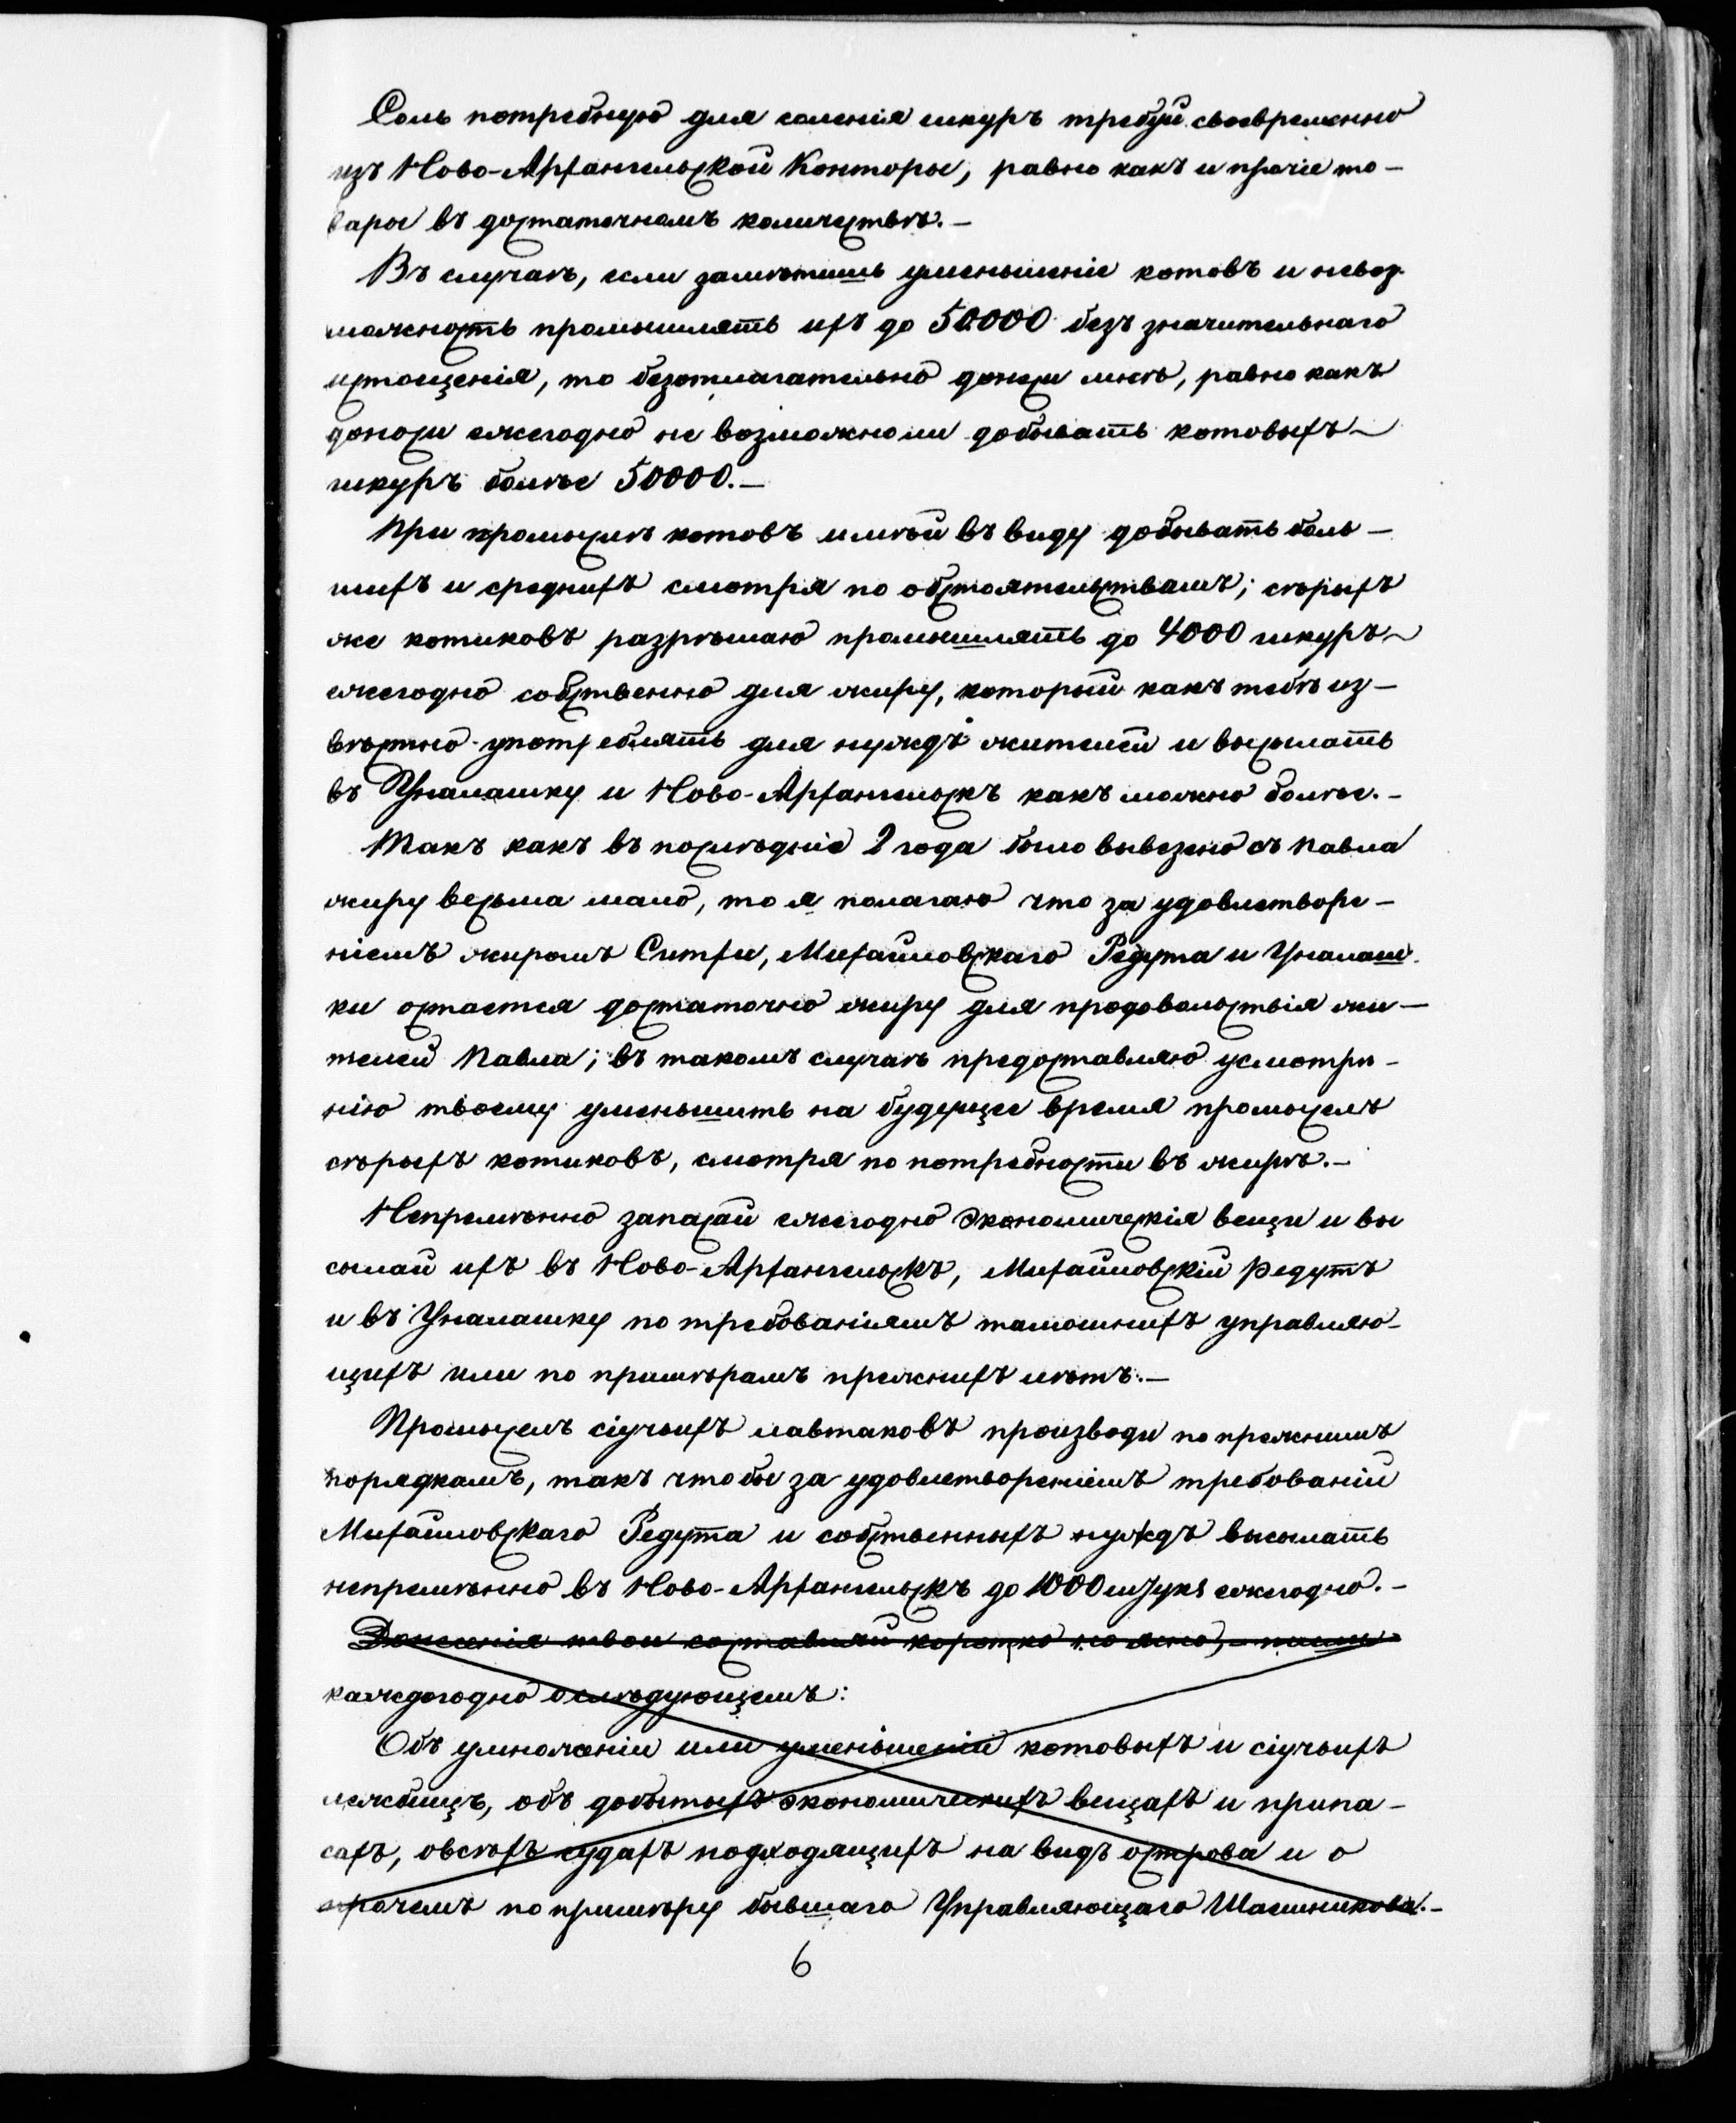 Соль потребную для соленія шкуръ требуй своевременно
изъ Ново-Архангельской Конторы, равно какъ и прочіе то-
вары въ достаточномъ количествѣ.-
Въ случаѣ, если замѣтишь уменьшеніе котовъ и невоз-
можность промышлять ихъ до 50000 безъ значительнаго
истощенія, то безотлагательно донеси мнѣ, равно какъ
доноси ежегодно не возможноли добывать котовыхъ
шкуръ болѣе 50000.-
При промыслѣ котовъ имѣй въ виду добывать боль-
шихъ и среднихъ смотря по обстоятельствамъ; сѣрыхъ
же котиковъ разрѣшаю промышлять до 4000 шкуръ
ежегодно собственно для жиру, который какъ тебѣ из-
вѣстно употреблять для нуждъ жителей и высылать
въ Уналашку и Ново-Архангельскъ какъ можно болѣе.-
Такъ какъ въ послѣдніе 2 года было вывезено съ Павла
жиру весьма мало, то я полагаю что за удовлетворе-
ніемъ жиромъ Ситхи, Михайловскаго Редута и Уналаш-
ки остается достаточно жиру для продовольствія жи-
телей Павла; въ такомъ случаѣ предоставляю усмотрѣ-
нію твоему уменьшить на будущее время промыселъ
сѣрыхъ котиковъ, смотря по потребности въ жирѣ.-
Непремѣнно запасай ежегодно экономическія вещи и вы
сылай ихъ въ Ново-Архангельскъ, Михайловскій редутъ
и въ Уналашку по требованіямъ тамошнихъ управляю-
щихъ или по примѣрамъ прежнихъ лѣтъ.-
Промыселъ сіучьихъ лавтаковъ производи по прежнимъ
порядкамъ, такъ чтобы за удовлетвореніемъ требованій
Михайловскаго Редута и собственныхъ нуждъ высылать
непремѣнно въ Ново-Архангельскъ до 1000 штукъ ежегодно.-
Донесенія твои составляй коротко но ясно, - пиши
каждогодно о слѣдующемъ:
Объ умноженіи или уменьшеніи котовыхъ и сіучьихъ
лежбищъ, объ добытыхъ экономическихъ вещахъ и припа-
сахъ, овсѣхъ судахъ подходящихъ на видъ острова и о
прочемъ по примѣру бывшаго Управляющаго Шаешникова.-
6